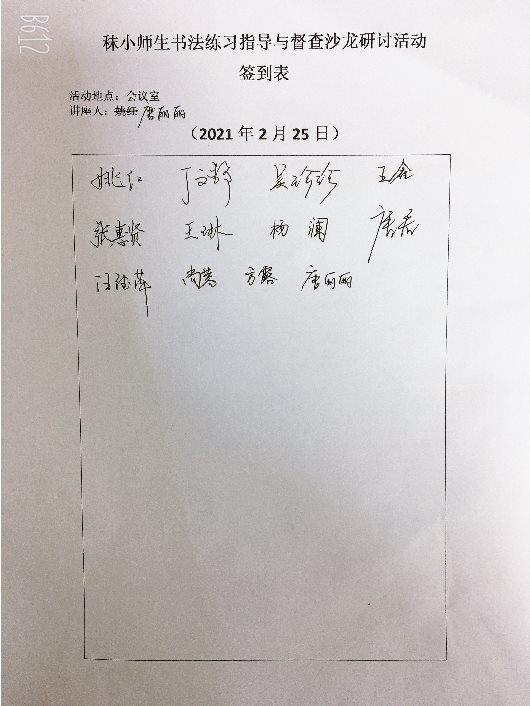 B612
秣小师生书法练习指导与督查沙龙研讨活动
签到表
活动地点：会议室
讲座人：姚红 唐丽丽
（2021 年 2 月 25 日）
姚红 丁文静 吴玲玲 王鑫
张惠贤 王琳 杨澜 唐君
尚慧 方露 唐丽丽